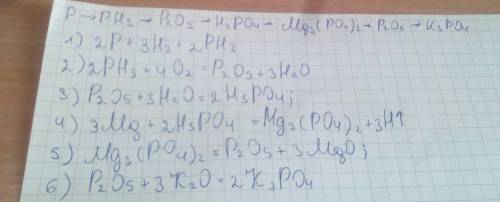 P → PH₃ → P₂O₅ → H₃PO₄ → Mg₃(PO₄)₂ → P₂O₅ → K₃PO₄
1) 2P + 3H₂ = 2PH₃
2) 2PH₃ + 4O₂ = P₂O₅ + 3H₂O
3) P₂O₅ + 3H₂O = 2H₃PO₄;
4) 3Mg + 2H₃PO₄ = Mg₃(PO₄)₂ + 3H↑
5) Mg₃(PO₄)₂ = P₂O₅ + 3MgO;
6) P₂O₅ + 3K₂O = 2K₃PO₄